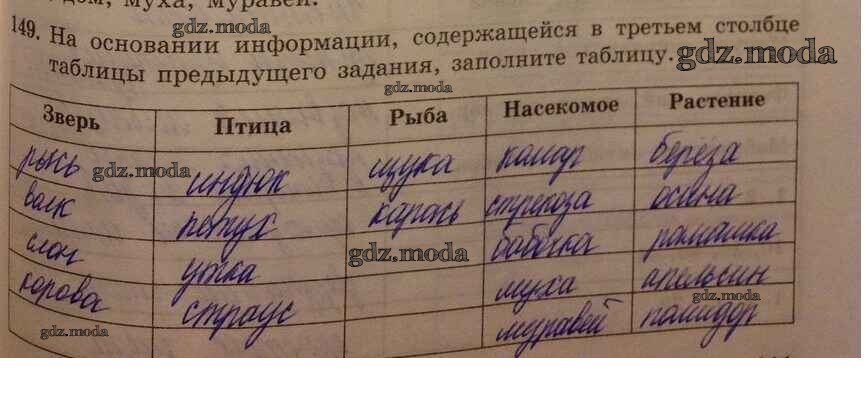 дом, муха, муравей.
gdz.moda
149. На основании информации, содержащейся в третьем столбце
gdz.moda
таблицы предыдущего задания, заполните таблицу.
gdz.moda
Зверь Птица Рыба Насекомое Растение
рысь индюк щука комар берёза
gdz.moda
волк петух карась стрекоза осина
слон утка бабочка ромашка
gdz.moda
корова страус муха апельсин
gdz.moda
gdz.moda
муравей помидор